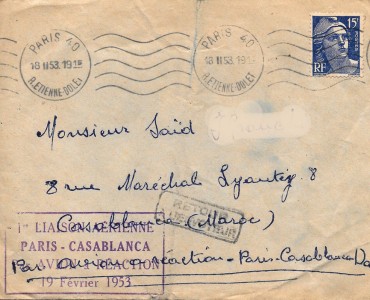 PARIS 40
18 II 53. 19
R. ETIENNE-DOLET
PARIS 40
18 II 53. 19
R. ETIENNE-DOLET
15F
RF
Monsieur Saïd
8 rue Maréchal Lyautey 8
Casablanca (Maroc)
RETOUR
A L'ENVOYEUR
1re LIAISON AERIENNE
PARIS - CASABLANCA
AVION A REACTION
19 Février 1953
Par avion à réaction - Paris-Casablanca